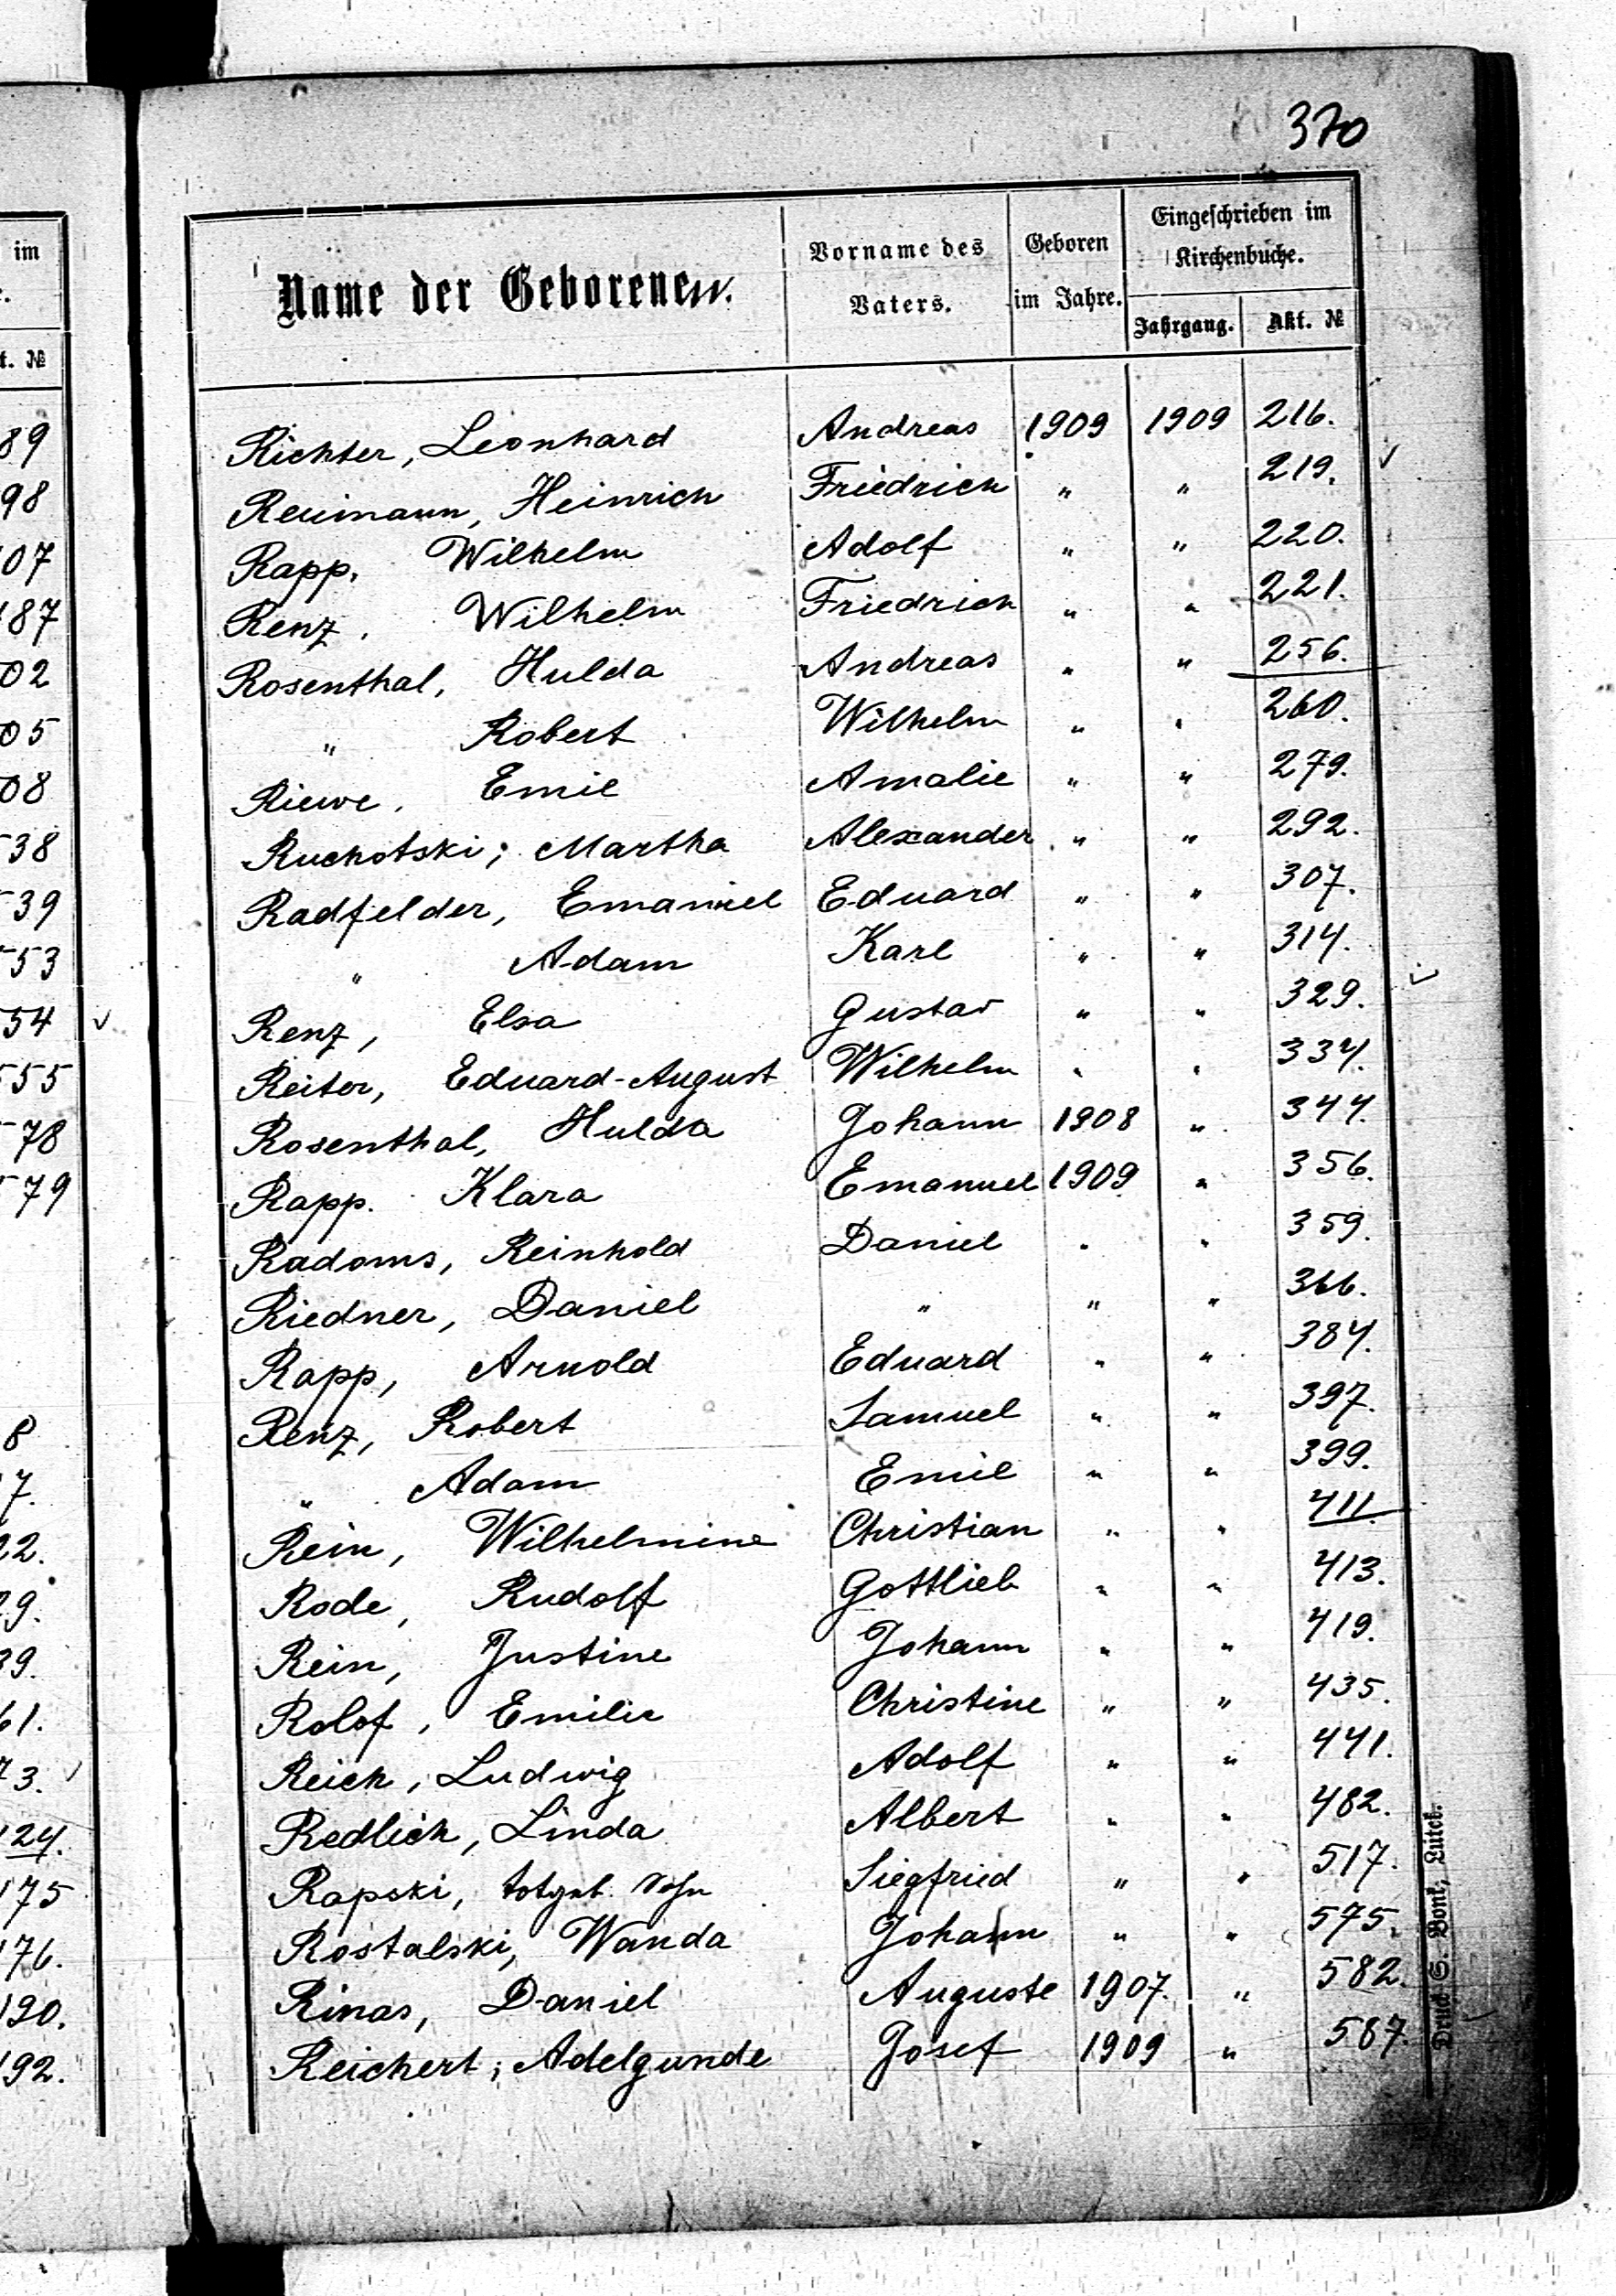 370
im
Name der Geborenen.
Vorname des Vaters.
Geboren im Jahre.
Eingeschrieben im Kirchenbuche.
Jahrgang. Akt. №
t. №
89
Richter, Leonhard Andreas 1909 1909 216.
98
Reumann, Heinrich Friedrich " " 219. ✓
07
Rapp, Wilhelm Adolf " " 220.
87
Renz, Wilhelm Friedrich " " 221.
02
Rosenthal, Hulda Andreas " " 256.
05
" Robert Wilhelm " " 260.
08
Riewe, Emil Amalie " " 279.
38
Ruchotski; Martha Alexander " " 292.
39
Radfelder, Emanuel Eduard " " 307.
53
" Adam Karl " " 314.
54 ✓
Renz, Elsa Gustav " " 329. ✓
555
Reiter, Eduard-August Wilhelm " " 334.
78
Rosenthal, Hulda Johann 1908 " 344.
579
Rapp. Klara Emanuel 1909 " 356.
Radoms, Reinhold Daniel " " 359.
Riedner, Daniel " " " 366.
Rapp, Arnold Eduard " " 384.
8
Renz, Robert Samuel " " 397.
7.
" Adam Emil " " 399.
22.
Rein, Wilhelmine Christian " " 411.
29.
Rode, Rudolf Gottlieb " " 413.
39.
Rein, Justine Johann " " 419.
61.
Rolof, Emilie Christine " " 435.
73.
Reich, Ludwig Adolf " " 441.
124.
Redlich, Linda Albert " " 482.
175
Rapski, totgeb. Sohn Siegfried " " 517.
176.
Rostalski, Wanda Johann " " 575.
190.
Rinas, Daniel Auguste 1907. " 582.
192.
Reichert; Adelgunde Josef 1909 " 587.
Druck S. Bonk, Lutck.